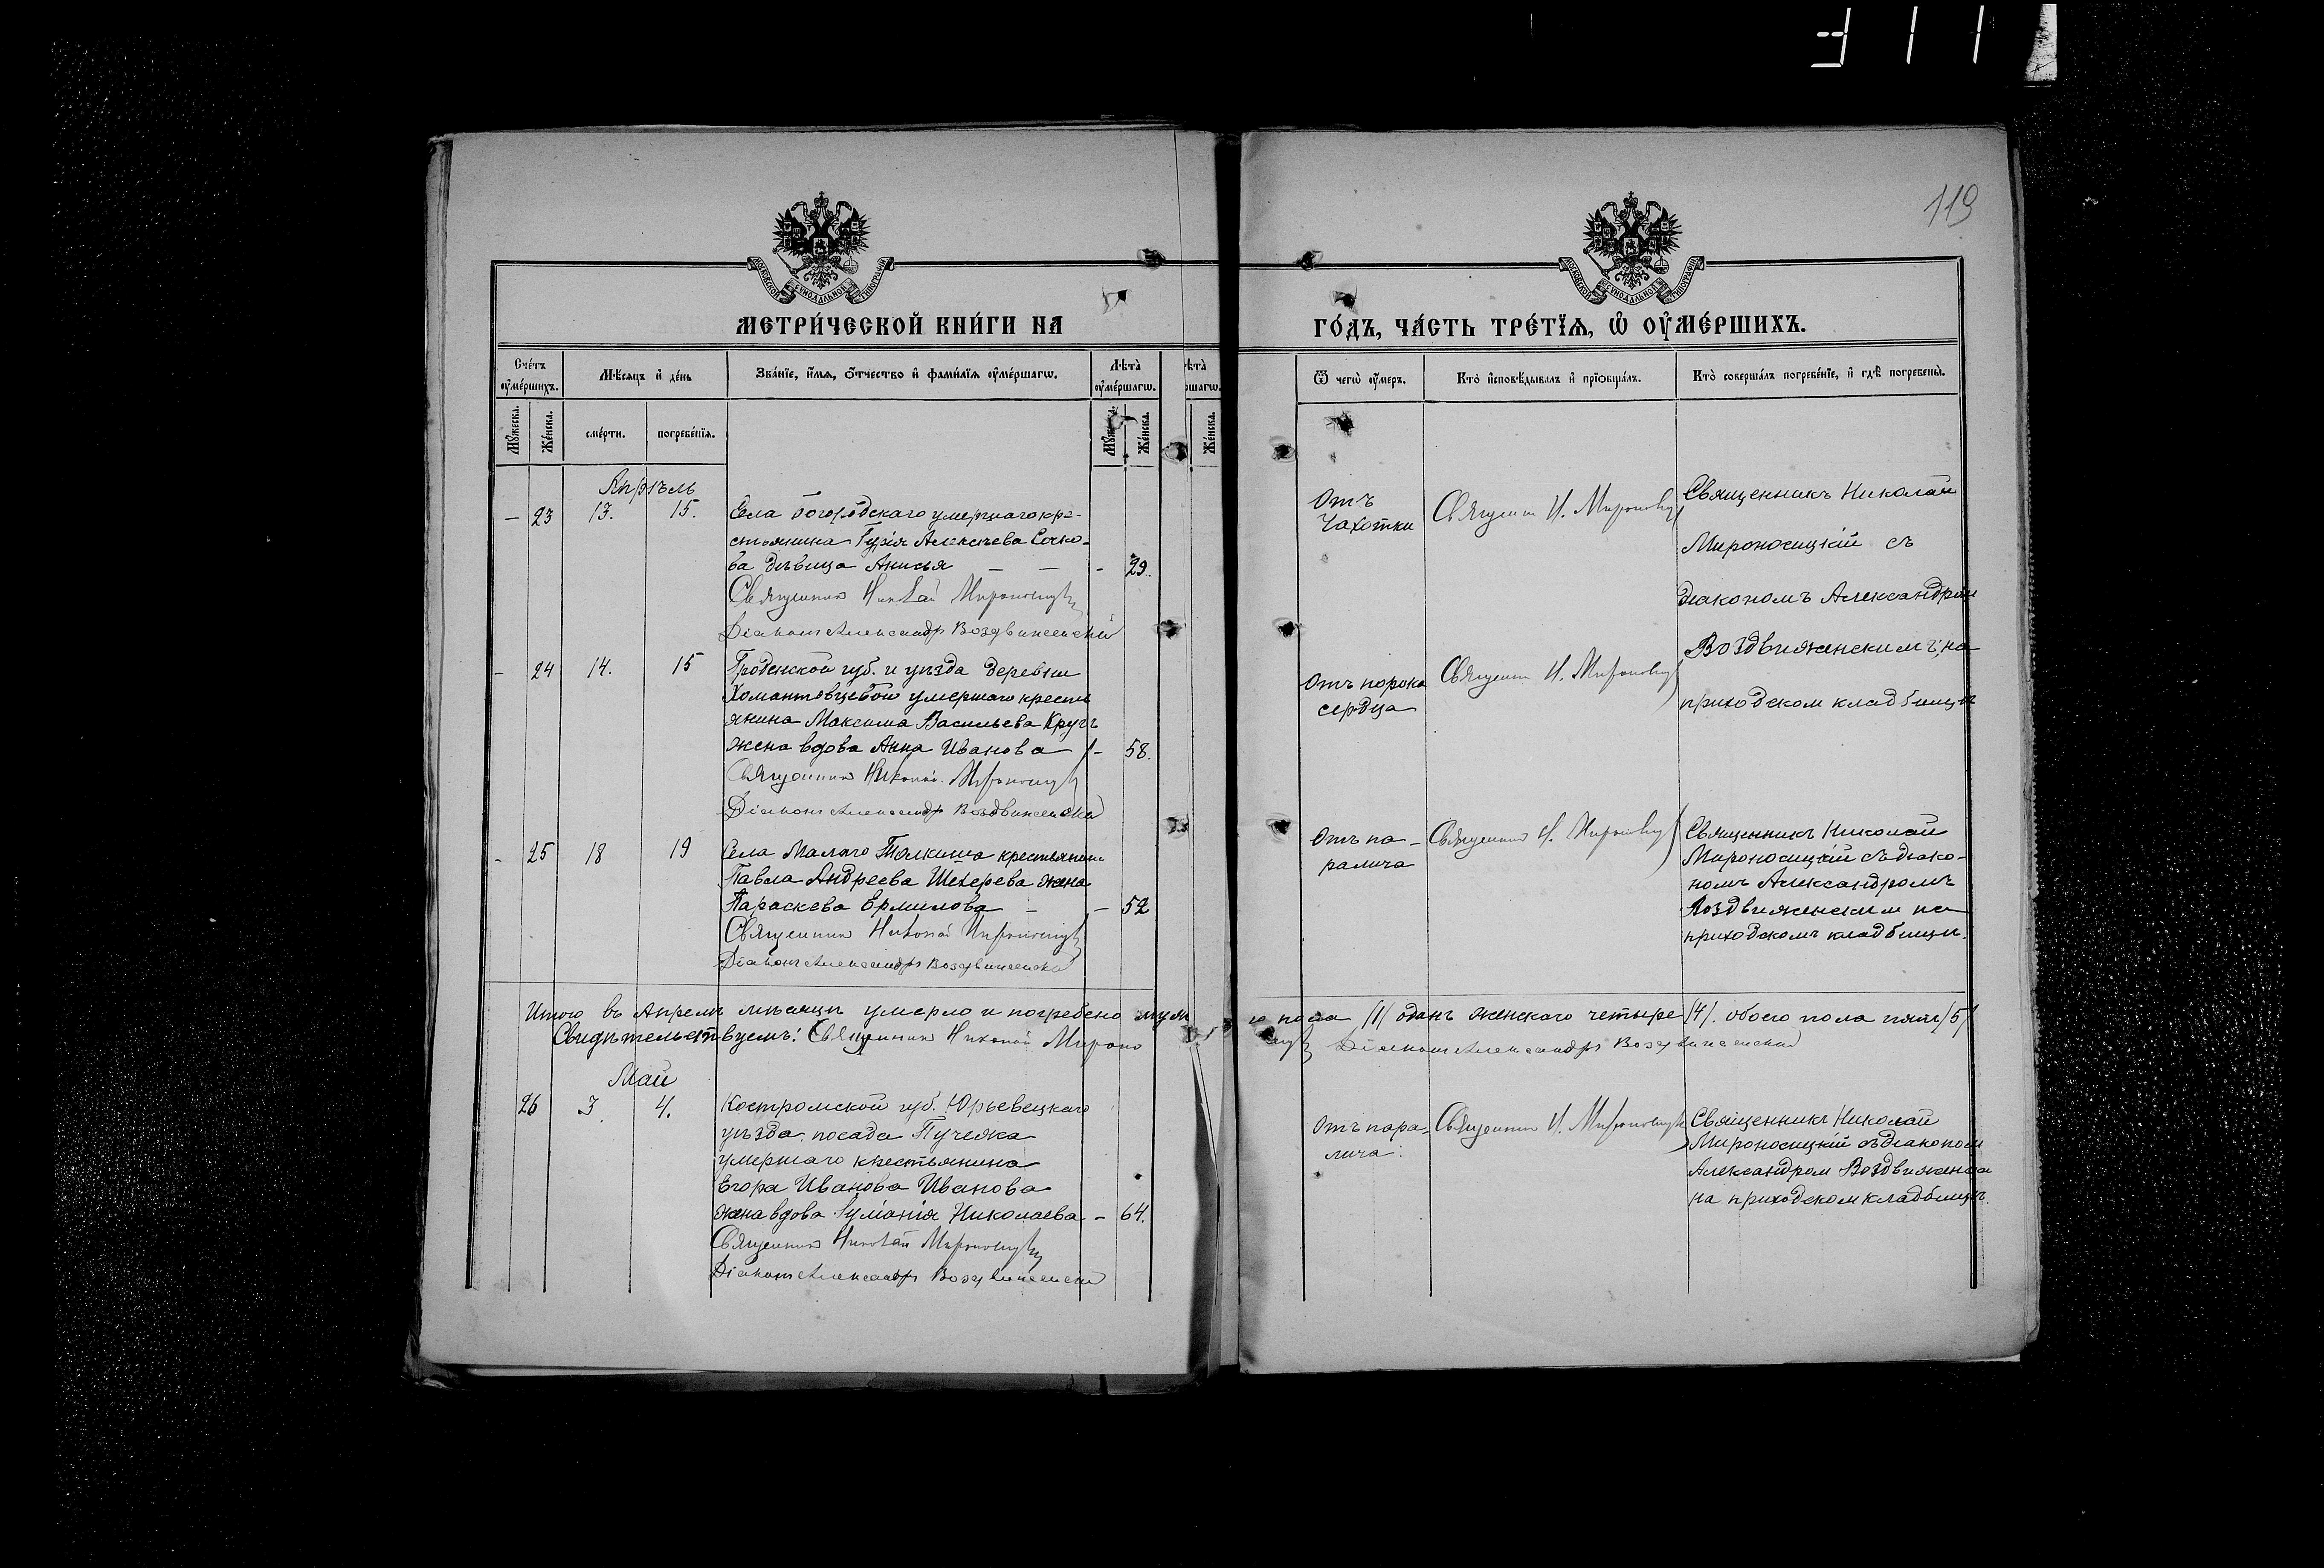 119
МОСКОВСКОЙ СѴНОДАЛЬНОЙ ТИПОГРАФІИ
МОСКОВСКОЙ СѴНОДАЛЬНОЙ ТИПОГРАФІИ
МЕТРИ́ЧЕСКОЙ КНИ́ГИ НА ГО́ДЪ, ЧА́СТЬ ТРЕ́ТЇѦ, Ѡ҆ ОУ҆МЕ́РШИХЪ.
Сче́тъ оу҆ме́ршихъ.
Мѣ́сяцъ и҆ де́нь
Зва́нїе, и҆́мѧ, ѻ҆́тчество и҆ фами́лїѧ оу҆ме́ршагѡ.
Лѣ́та оу҆ме́ршагѡ.
Ѿ чегѡ̀ оу҆́меръ.
Кто̀ и҆сповѣ́дывалъ и҆ прїобща́лъ.
Кто̀ соверша́лъ погребе́нїе, и҆ гдѣ̀ погребены̀.
Мꙋ́жеска.
Же́нска.
сме́рти.
погребе́нїѧ.
Мꙋ́жеска.
Же́нска.
Же́нска.
Апрѣль
— 23 13. 15. Села Богородскаго умершаго кре-
стьянина Гурія Алексѣева
ва дѣвица Анисья — — - 29.
Священникъ Николай Мироносицкій
Діаконъ Александръ Воздвиженскій
Отъ
Чахотки
Священникъ Н. Мироносицкій
Священникъ Николай
Мироносицкій съ
діакономъ Александромъ
Воздвиженскимъ, на
приходском кладбищѣ
- 24 14. 15 Гродненской губ. и уѣзда деревни
умершаго кресть
янина Максима Васильева Кругъ
жена вдова Анна Иванова - 58.
Священникъ Николай Мироносицкій
Діаконъ Александръ Воздвиженскій
Отъ порока
сердца
Священникъ Н. Мироносицкій
- 25 18 19 Села Малаго Толкиша крестьянина
Павла Андреева жена
Параскева Ермилова - - 52
Священникъ Николай Мироносицкій
Діаконъ Александръ Воздвиженскій
Отъ па-
ралича
Священникъ Н. Мироносицкій
Священникъ Николай
Мироносицкій съ діако-
номъ Александромъ
Воздвиженским на
приходскомъ кладбищѣ.
Итого въ Апрелѣ мѣсяцѣ умерло и погребено муж го пола /1/ одинъ женскаго четыре /4/. обоего пола пять /5/
Свидѣтельствуемъ: Священникъ Николай Мироносицкій Діаконъ Александръ Воздвиженскій
Май
26 3. 4. Костромской губ. Юрьевецкаго
уѣзда посада Пучежа
умершаго крестьянина
Егора Иванова Иванова
жена вдова Николаева - 64.
Священникъ Николай Мироносицкій
Діаконъ Александръ Воздвиженскій
Отъ пара-
лича.
Священникъ Н. Мироносицкій
Священникъ Николай
Мироносицкій съ діакономъ
Александром Воздвиженским
на приходском кладбищѣ.